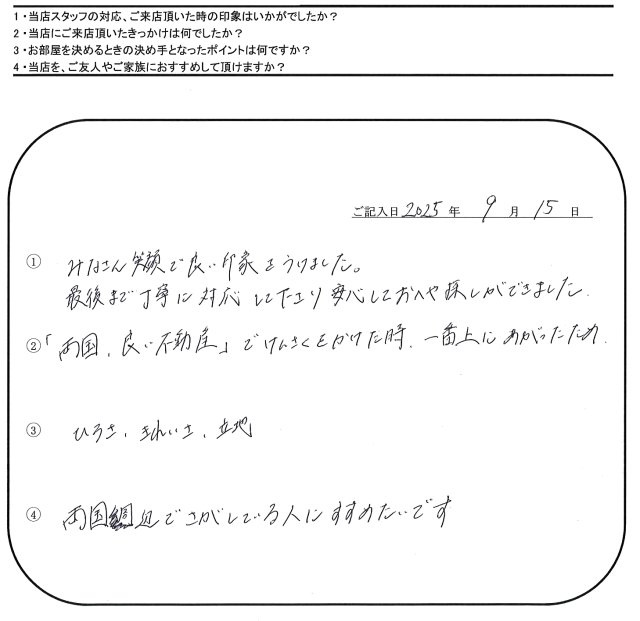 1・当店スタッフの対応、ご来店頂いた時の印象はいかがでしたか？
2・当店にご来店頂いたきっかけは何でしたか？
3・お部屋を決めるときの決め手となったポイントは何ですか？
4・当店を、ご友人やご家族におすすめして頂けますか？
ご記入日 2025 年 9 月 15 日
① みなさん笑顔で良い印象をうけました。
最後まで丁寧に対応して下さり安心しておへや探しができました.
②「両国、良い不動産」でけんさくをかけた時、一番上にあがったため.
③ ひろさ、きれいさ、立地
④ 両国 辺でさがしている人にすすめたいです